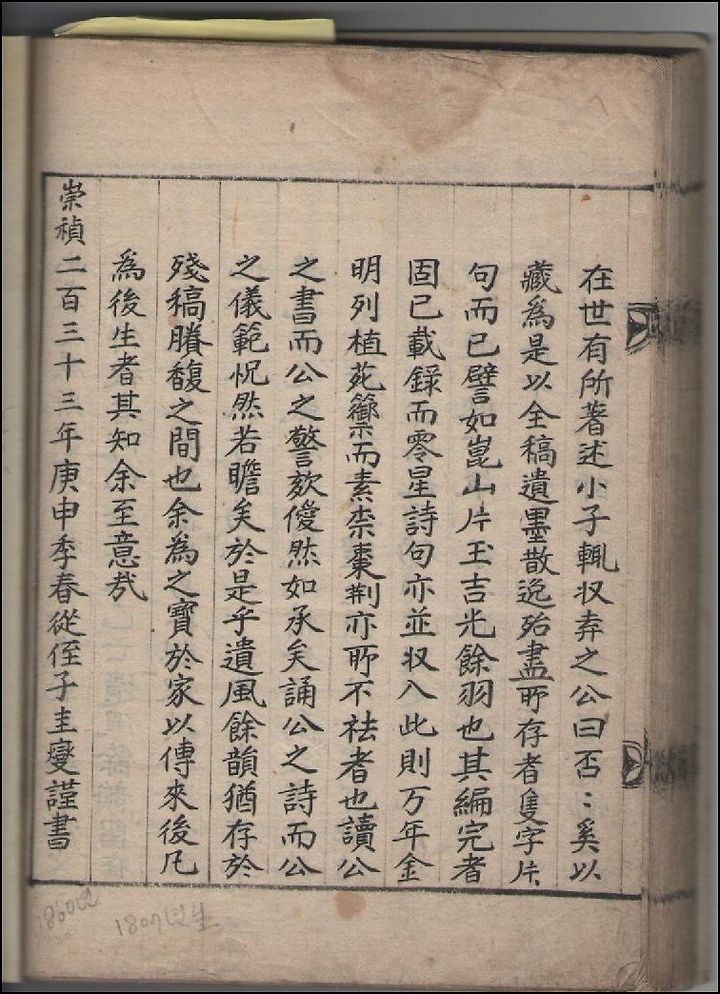 在世有所著述小子輒収弆之公曰否〻奚以
藏爲是以全稿遺墨散逸殆盡所存者隻字片
句而已譬如崑山片玉吉光餘羽也其編完者
固已載錄而零星詩句亦並収入此則万年金
明列植苑籞而素柰棗荆亦所不祛者也讀公
之書而公之警欬僾然如承矣誦公之詩而公
之儀範怳然若瞻矣於是乎遺風餘韻猶存於
殘稿賸馥之間也余爲之寶於家以傳來後凡
爲後生者其知余至意㢤
崇禎二百三十三年庚申季春從侄子圭燮謹書
1860년
1807년生